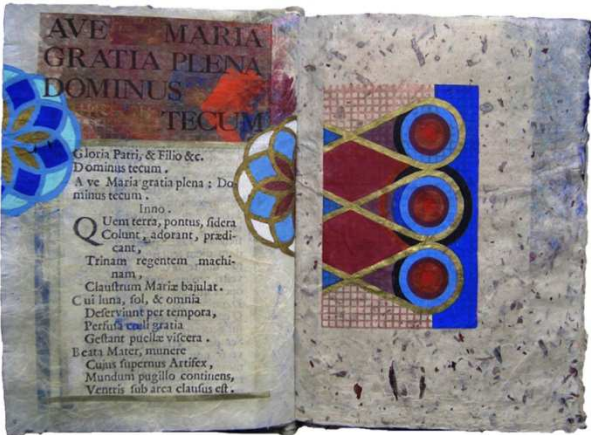 AVE MARIA
GRATIA PLENA
DOMINUS
TECUM
Gloria Patri, & Filio &c.
Dominus tecum.
Ave Maria gratia plena : Do
minus tecum.
Inno.
QUem terra, pontus, ſidera
Colunt, adorant, prædi-
cant,
Trinam regentem machi-
nam,
Clauſtrum Mariæ bajulat.
Cui luna, ſol, & omnia
Deſerviunt per tempora,
Perfuſa cæli gratia
Geſtant puellæ viſcera.
Beata Mater, munere
Cujus ſupernus Artifex,
Mundum pugillo continens,
Ventris ſub arca clauſus eſt.